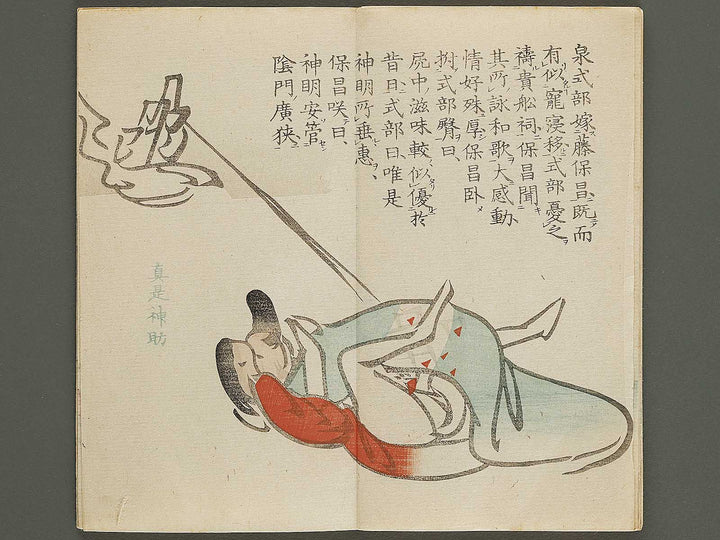 泉式部嫁藤保昌既而
有似寵寝移式部憂之
禱貴舩祠保昌聞
其所詠和歌大感動
情好殊厚保昌卧
拊式部臀曰、
屍中滋味較似優於
昔日式部曰唯是
神明所垂惠、
保昌咲曰、
神明安管
陰門廣狹
真是神助